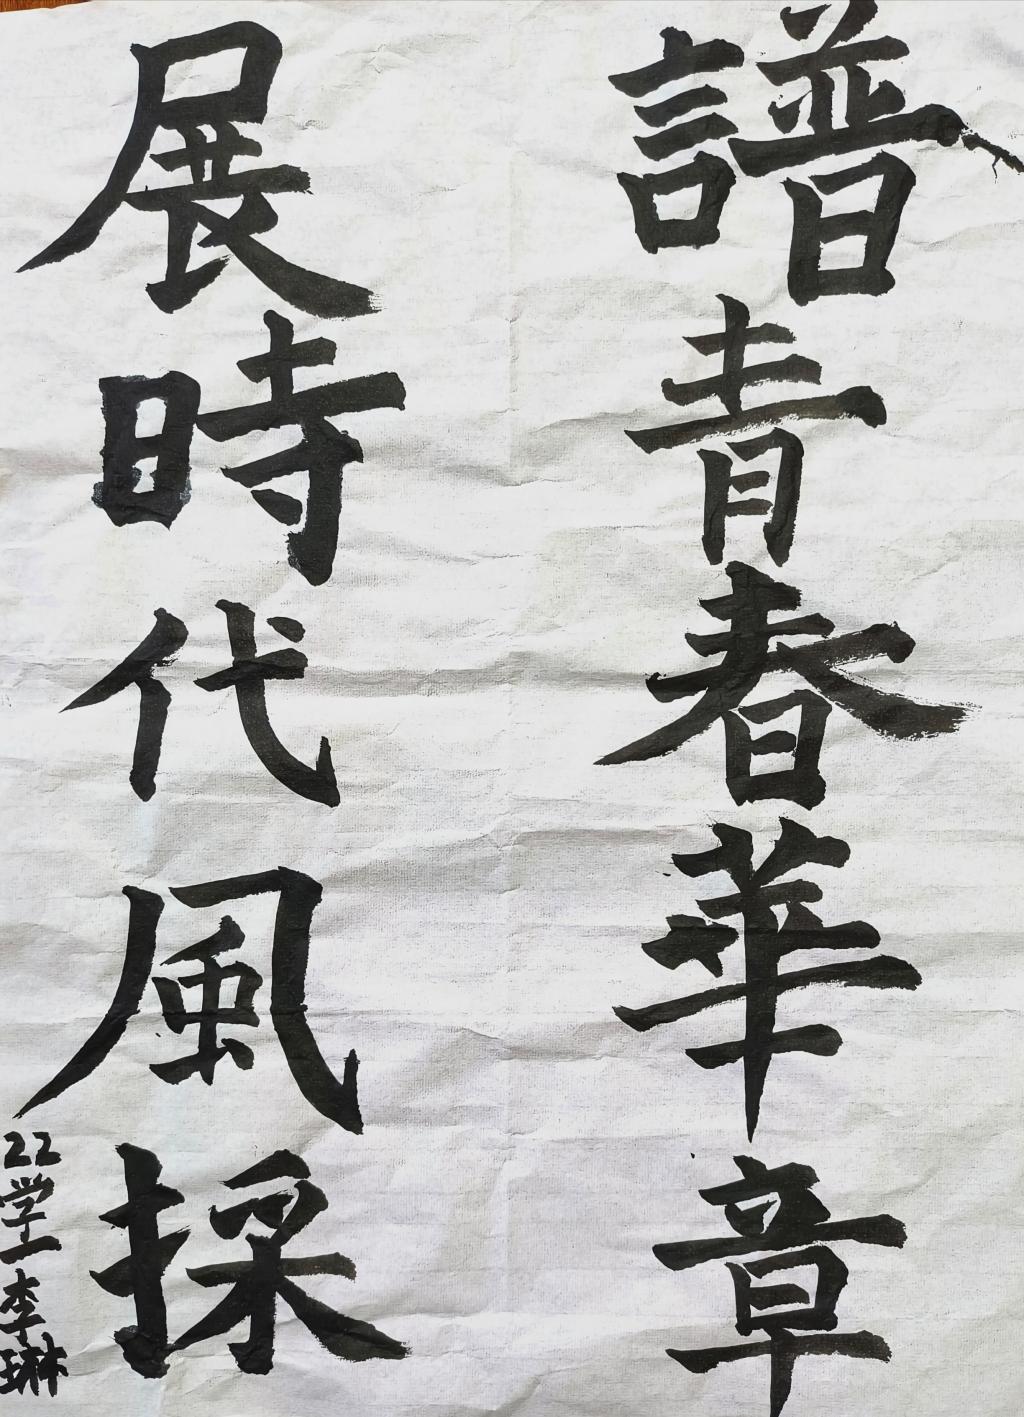 譜青春華章
展時代風採
22学一李琳